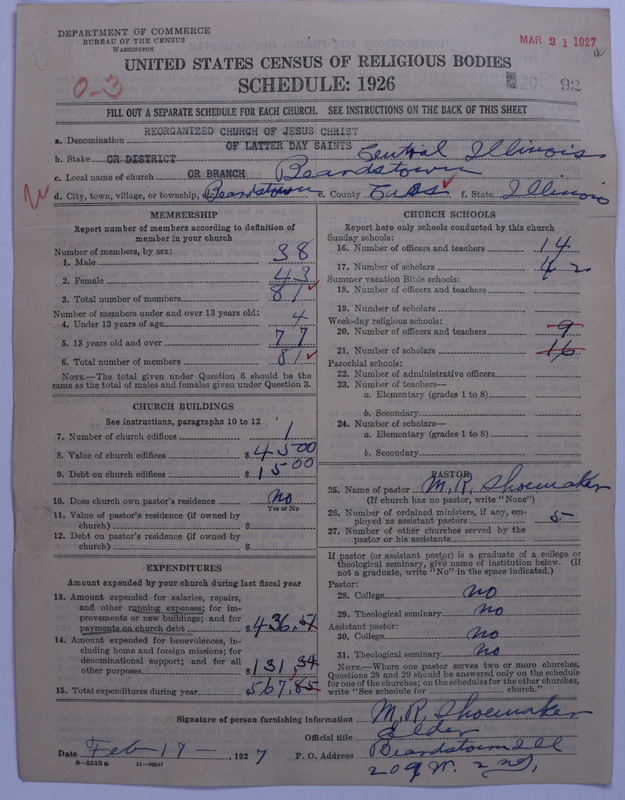 DEPARTMENT OF COMMERCE
BUREAU OF THE CENSUS
WASHINGTON
MAR 21 1927
UNITED STATES CENSUS OF RELIGIOUS BODIES
SCHEDULE: 1926
0-3
92
FILL OUT A SEPARATE SCHEDULE FOR EACH CHURCH. SEE INSTRUCTIONS ON THE BACK OF THIS SHEET
REORGANIZED CHURCH OF JESUS CHRIST
a. Denomination
OF LATTER DAY SAINTS
b. State OR DISTRICT Central Illinois
c. Local name of church OR BRANCH Beardstown
d. City, town, village, or township, etc. Beardstown e. County Cass f. State Illinois
MEMBERSHIP
Report number of members according to definition of
member in your church
Number of members, by sex:
1. Male 38
2. Female 43
3. Total number of members 81
Number of members under and over 13 years old:
4. Under 13 years of age 4
5. 13 years old and over 77
6. Total number of members 81
NOTE.—The total given under Question 6 should be the
same as the total of males and females given under Question 3.
CHURCH BUILDINGS
See instructions, paragraphs 10 to 12
7. Number of church edifices 1
8. Value of church edifices $ 4500
9. Debt on church edifices $ 1500
10. Does church own pastor's residence No
Yes or No
11. Value of pastor's residence (if owned by
church) $
12. Debt on pastor's residence (if owned by
church) $
EXPENDITURES
Amount expended by your church during last fiscal year
13. Amount expended for salaries, repairs,
and other running expenses; for im-
provements or new buildings; and for
payments on church debt $ 436.51
14. Amount expended for benevolences, in-
cluding home and foreign missions; for
denominational support; and for all
other purposes $ 131,34
15. Total expenditures during year $ 567,85
CHURCH SCHOOLS
Report here only schools conducted by this church
Sunday schools:
16. Number of officers and teachers 14
17. Number of scholars 42
Summer vacation Bible schools:
18. Number of officers and teachers
19. Number of scholars
Week-day religious schools:
20. Number of officers and teachers 9
21. Number of scholars 16
Parochial schools:
22. Number of administrative officers
23. Number of teachers—
a. Elementary (grades 1 to 8)
b. Secondary
24. Number of scholars—
a. Elementary (grades 1 to 8)
b. Secondary
PASTOR
25. Name of pastor M. R. Shoemaker
(If church has no pastor, write "None")
26. Number of ordained ministers, if any, em-
ployed as assistant pastors 5
27. Number of other churches served by the
pastor or his assistants
If pastor (or assistant pastor) is a graduate of a college or
theological seminary, give name of institution below. (If
not a graduate, write "No" in the space indicated.)
Pastor:
28. College no
29. Theological seminary no
Assistant pastor:
30. College no
31. Theological seminary no
NOTE.—Where one pastor serves two or more churches,
Questions 28 and 29 should be answered only on the schedule
for one of the churches; on the schedules for the other churches,
write "See schedule for church."
Signature of person furnishing information M. R. Shoemaker
Official title Elder
Date Feb 17 — , 1927 P. O. Address Beardstown Ill
209 W. 2nd,
8—5519a 11—9954f